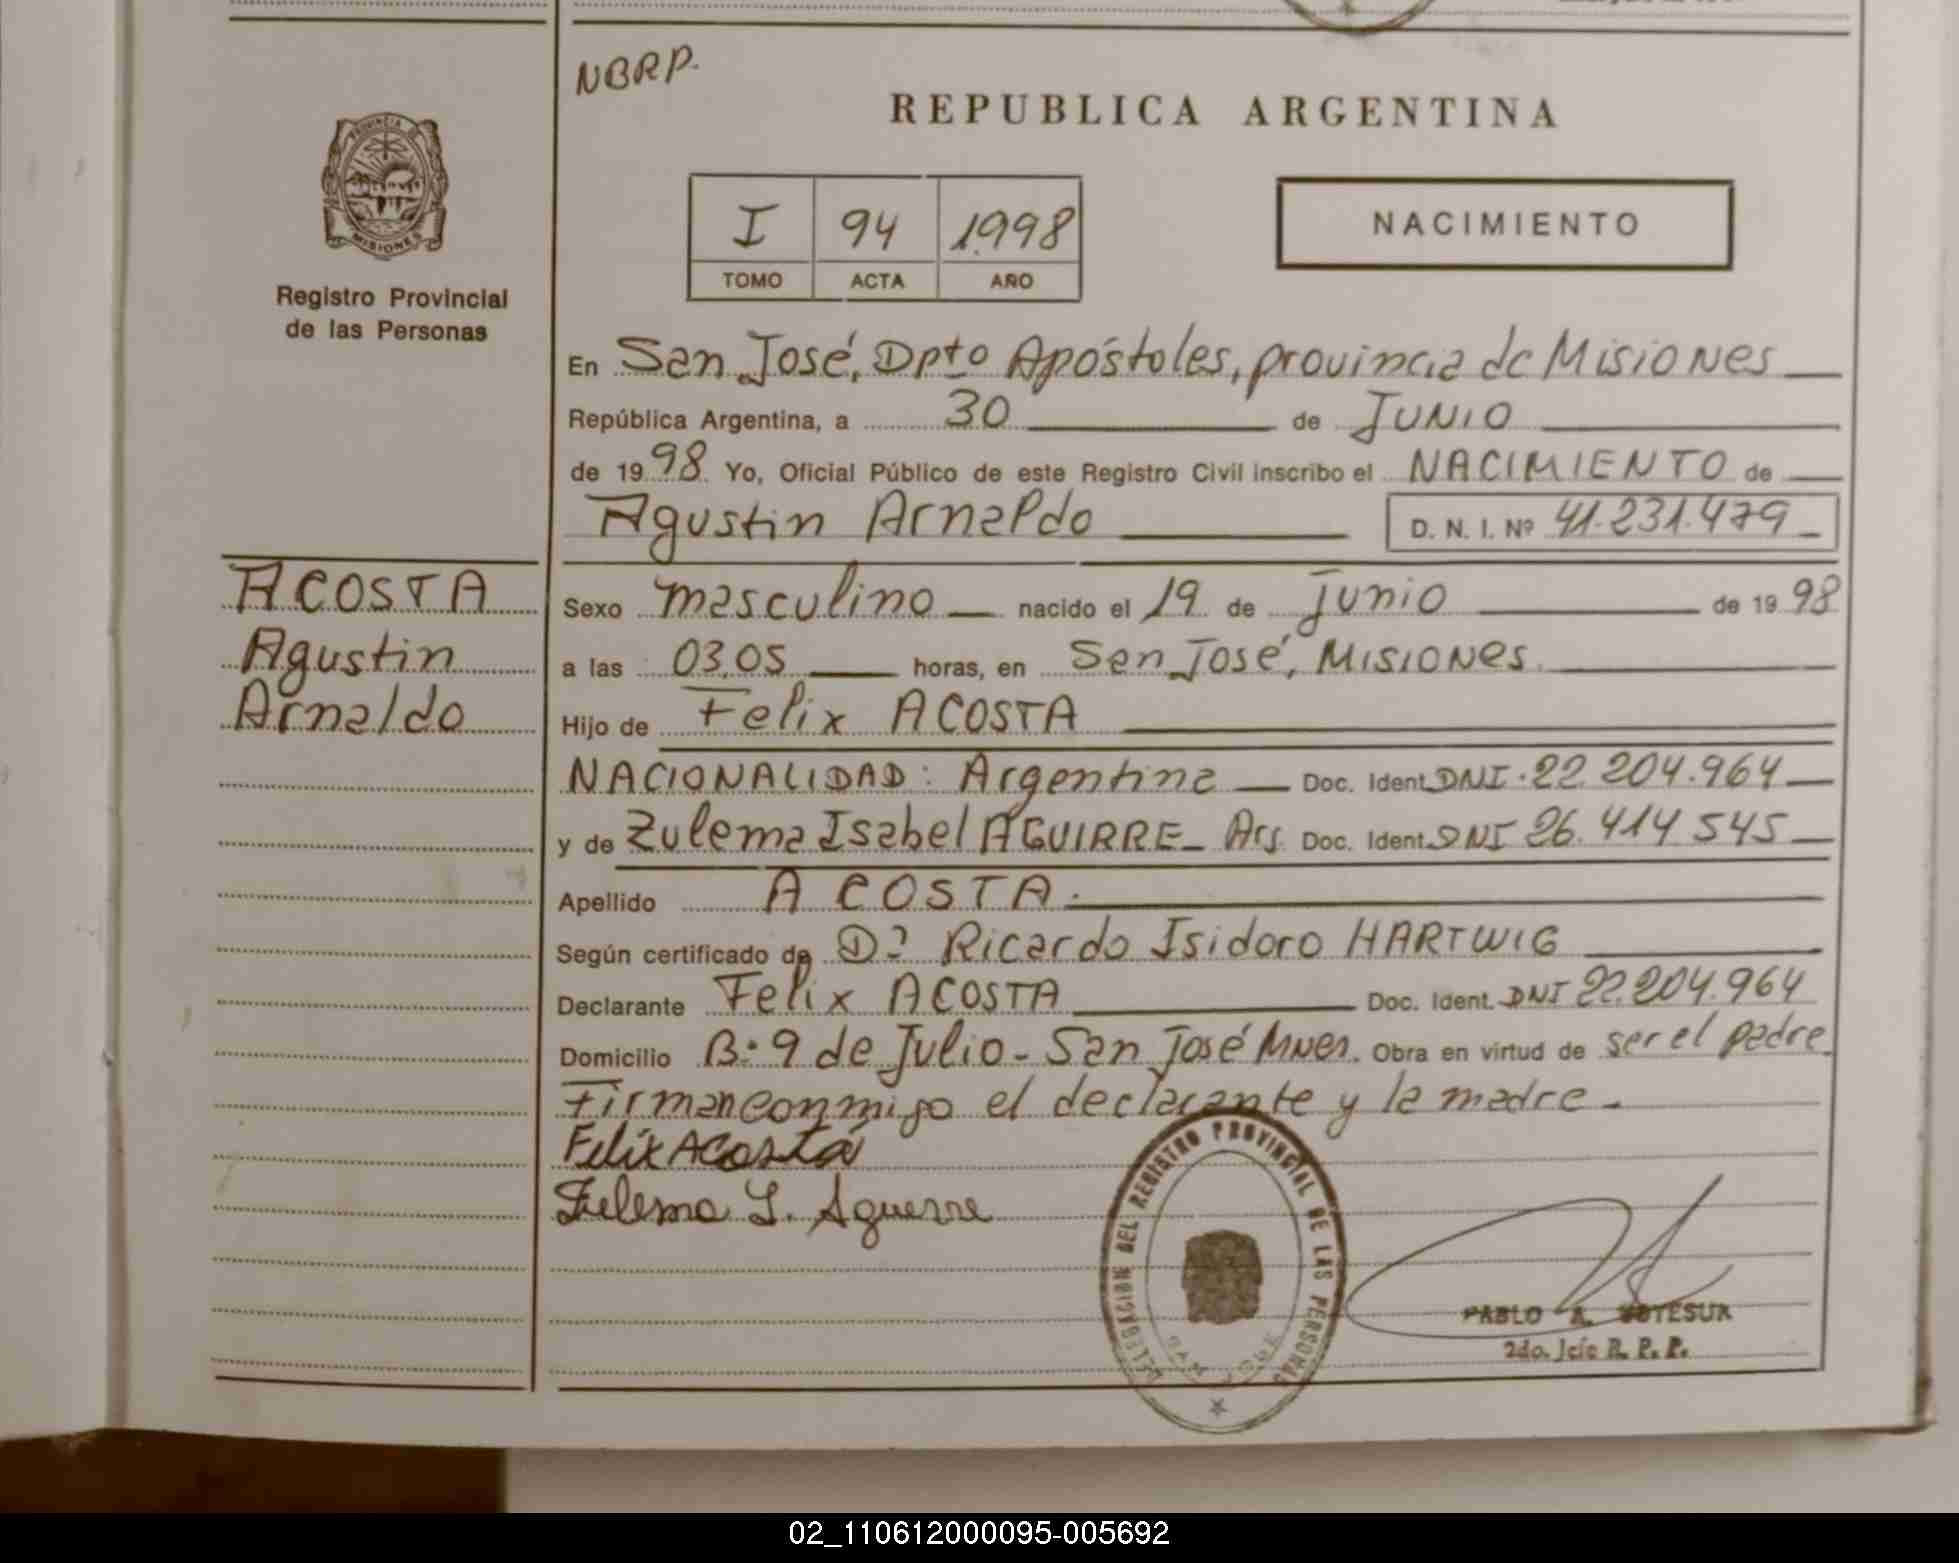 NBRP.
REPUBLICA ARGENTINA
PROVINCIA DE
MISIONES
Registro Provincial
de las Personas
I 94 1998
TOMO ACTA AÑO
NACIMIENTO
En San José, Dpto Apóstoles, provincia de Misiones
República Argentina, a 30 de Junio
de 1998 Yo, Oficial Público de este Registro Civil inscribo el NACIMIENTO de
Agustin Arnaldo D. N. I. Nº 41.231.479
ACOSTA
Agustin
Arnaldo
Sexo masculino nacido el 19 de junio de 1998
a las 03,05 horas, en San José, Misiones.
Hijo de Felix ACOSTA
NACIONALIDAD: Argentina Doc. Ident. DNI. 22 204.964
y de Zulema Isabel AGUIRRE Arg. Doc. Ident. DNI 26.414 545
Apellido ACOSTA.
Según certificado de Ricardo Isidoro HARTWIG
Declarante Felix ACOSTA Doc. Ident. DNI 22.204.964
Domicilio B: 9 de Julio - San José Obra en virtud de ser el padre.
Firman conmigo el declarante y la madre.
Felix Acosta
Zulema I. Aguirre
DELEGACION DEL REGISTRO PROVINCIAL DE LAS PERSONAS
SAN JOSE
PABLO A.
2do. Jefe R. P. P.
02_110612000095-005692